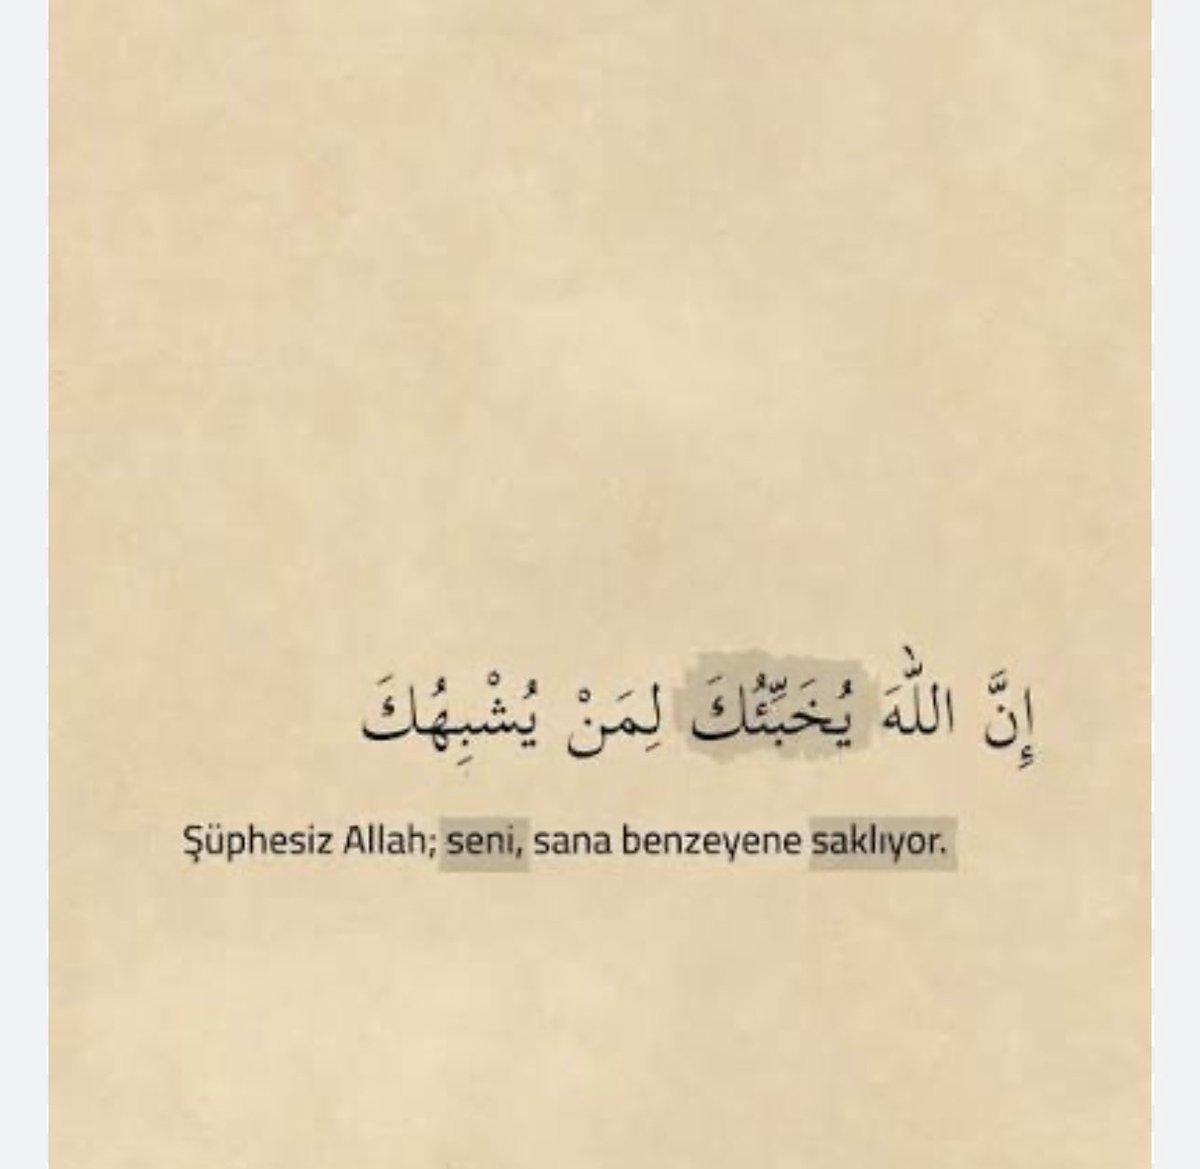 إِنَّ اللّٰهَ يُخَبِّئُكَ لِمَنْ يُشْبِهُكَ
Şüphesiz Allah; seni, sana benzeyene saklıyor.